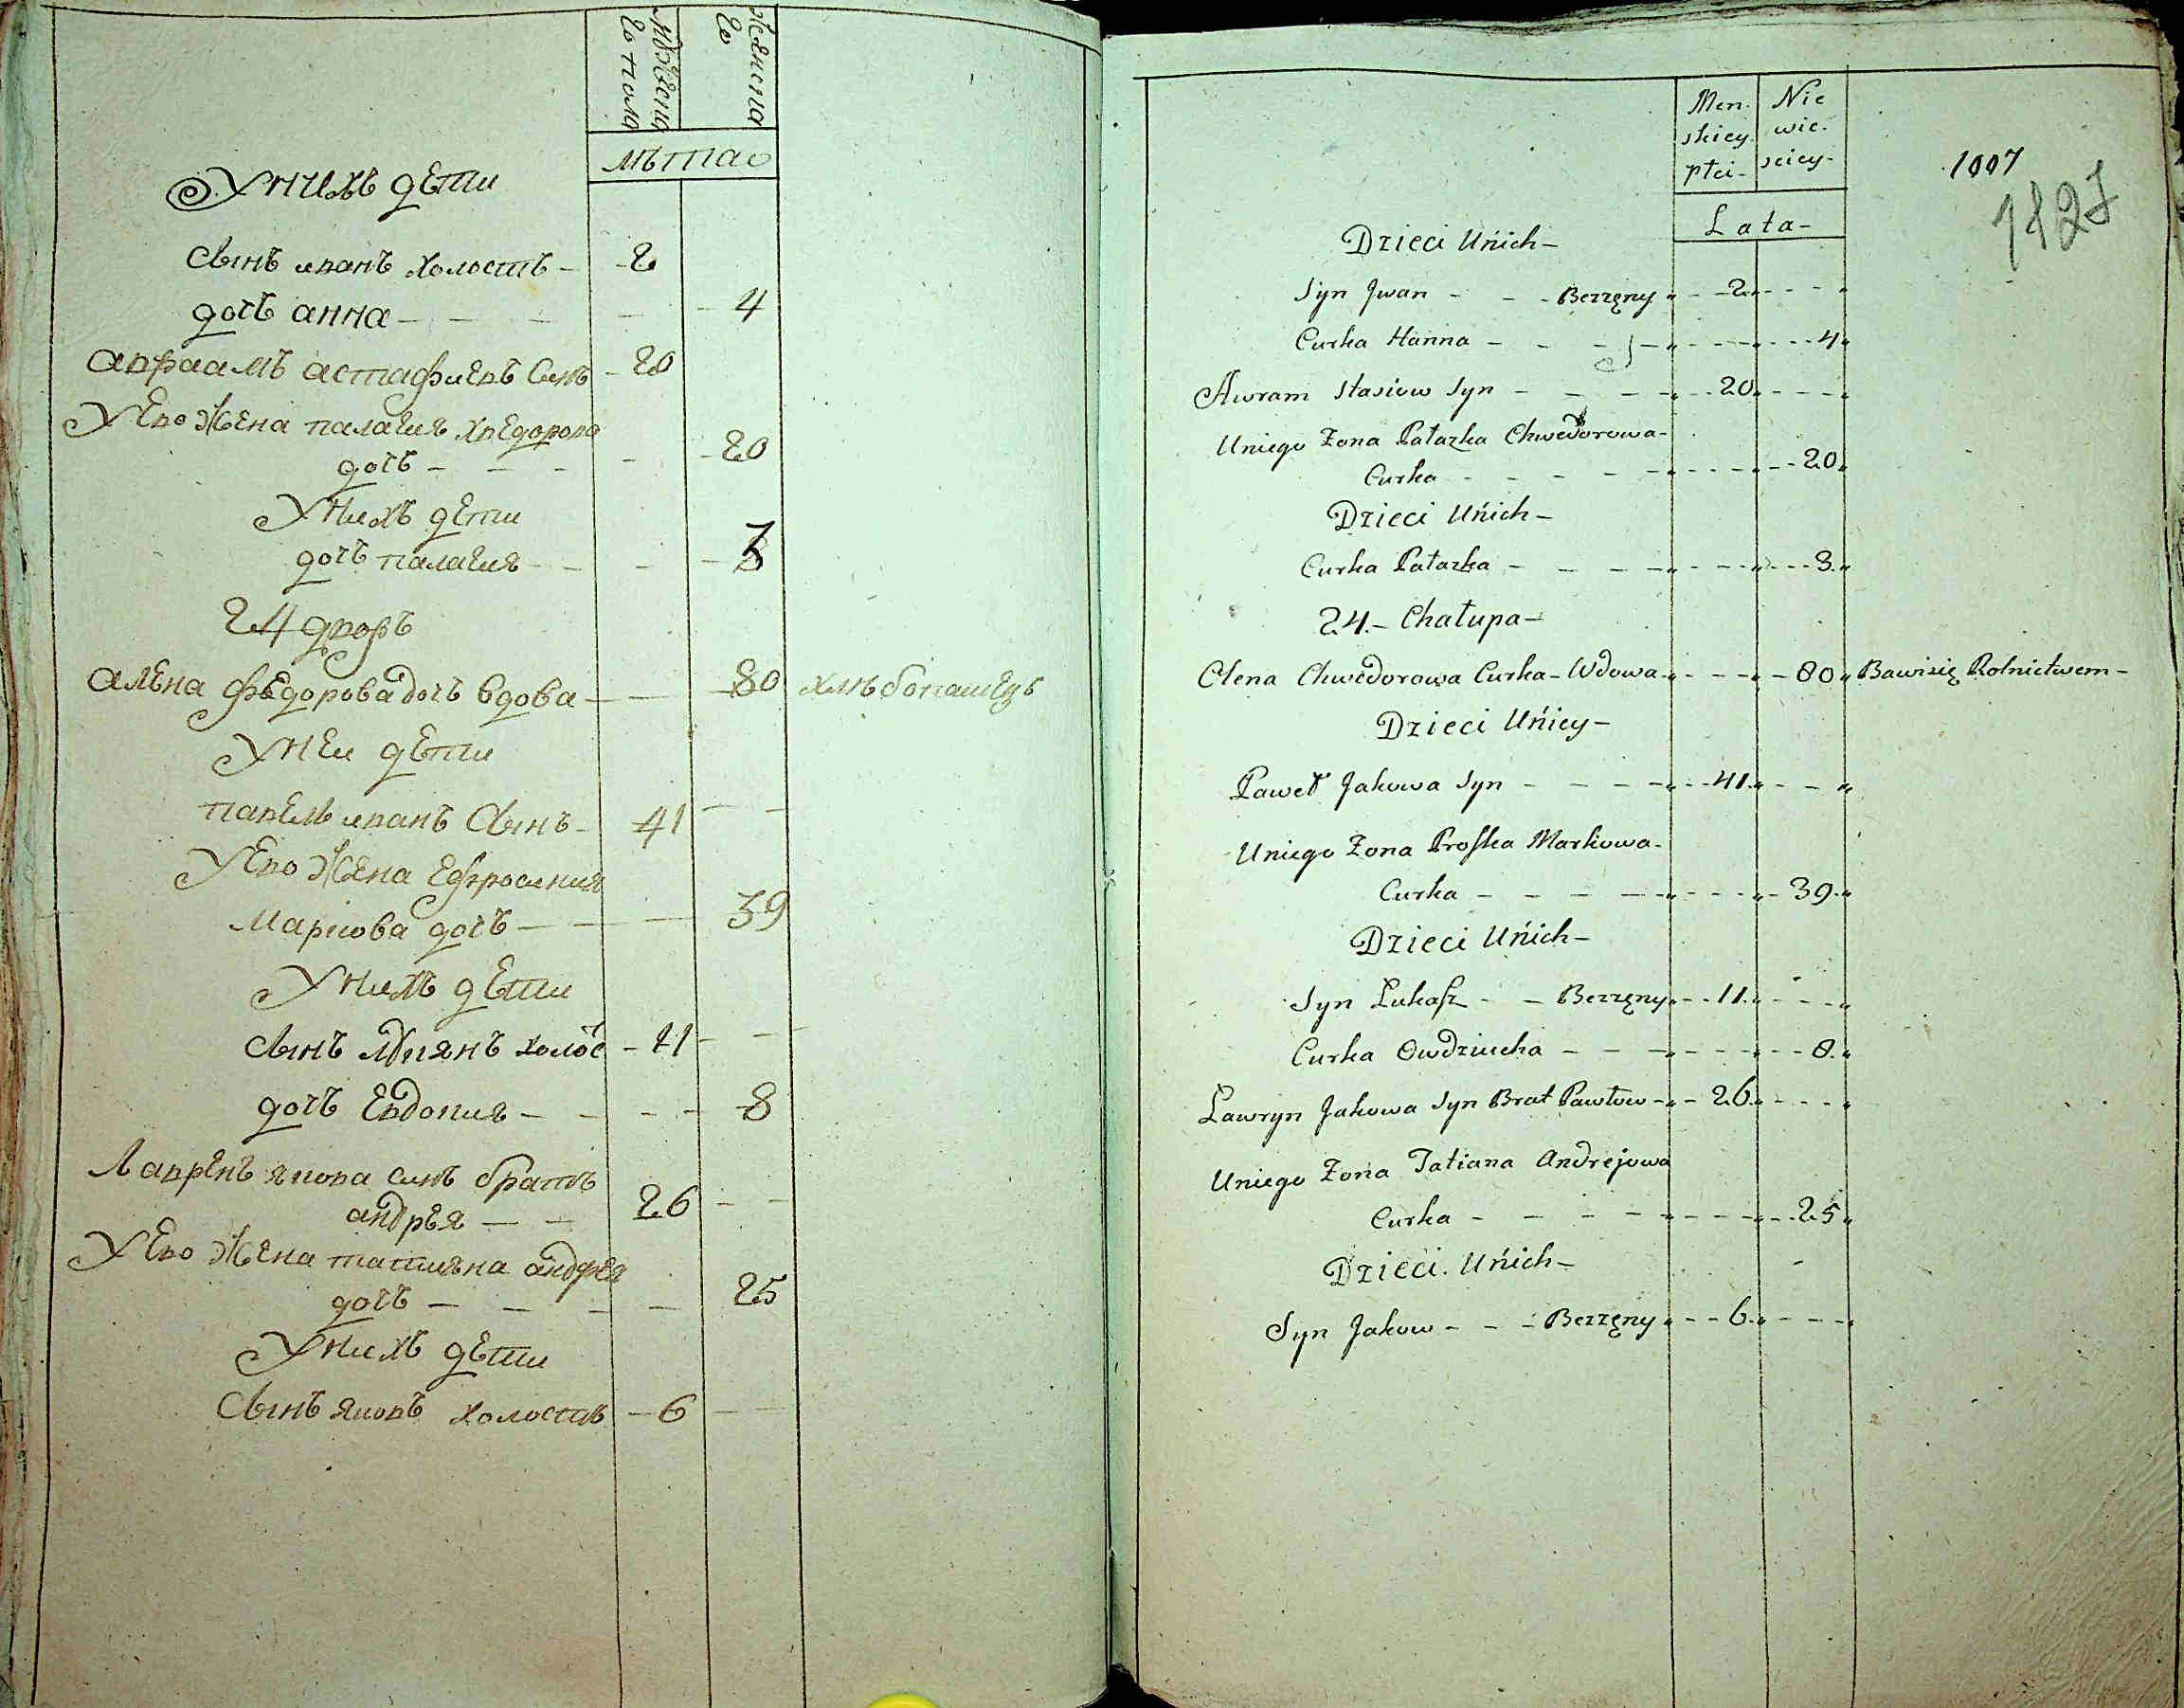 Мужеска
го пола
Женска
го
лѣта
У нихъ дети
Сынъ иванъ холостъ - 2
дочь анна - - - 4
авраамъ астафиевъ Синъ - 20
У Ево Жена палагия хведорова
дочь - - - 20
У нихъ дети
дочь палагия - - 3
24 дворъ
алена федорова дочь вдова - 80 хлѣбопашецъ
У ней дети
павелъ иванъ Сынъ - 41
У Ево Жена Ефросиния
Маркова дочь - 39
У нихъ дети
Сынъ лукянъ холос - 11
дочь Евдокия - - 8
Лаврѣнъ якова синъ братъ
андрѣя - - 26
У Ево Жена татияна андрея
дочь - - - 25
У нихъ дети
Сынъ яковъ холостъ - 6
Men.
skiey
płci-
Nie
wie.
sciey-
Lata-
1007
1827
Dzieci Unich-
Syn Jwan - - - Bezzęny - 2
Curka Hanna - - - 4
Awram Stasiow Syn - - - 20
Uniego Zona Pałazka Chwedorowa-
Curka - - - - 20
Dzieci Unich-
Curka Pałazka - - - - 3
24.- Chałupa-
Olena Chwedorowa Curka- Wdowa - 80 Bawisię Rolnictwem-
Dzieci Uniey-
Paweł Jakowa Syn - - - - 41
Uniego Zona Proska Markowa-
Curka - - - - 39
Dzieci Unich-
Syn Łukasz - - Bezzęny - 11
Curka Owdziucha - - - 8
Ławryn Jakowa Syn Brat Pawłow - 26
Uniego Zona Tatiana Andrejowa
Curka - - - - 25
Dzieci Unich-
Syn Jakow - - - Bezzęny - 6